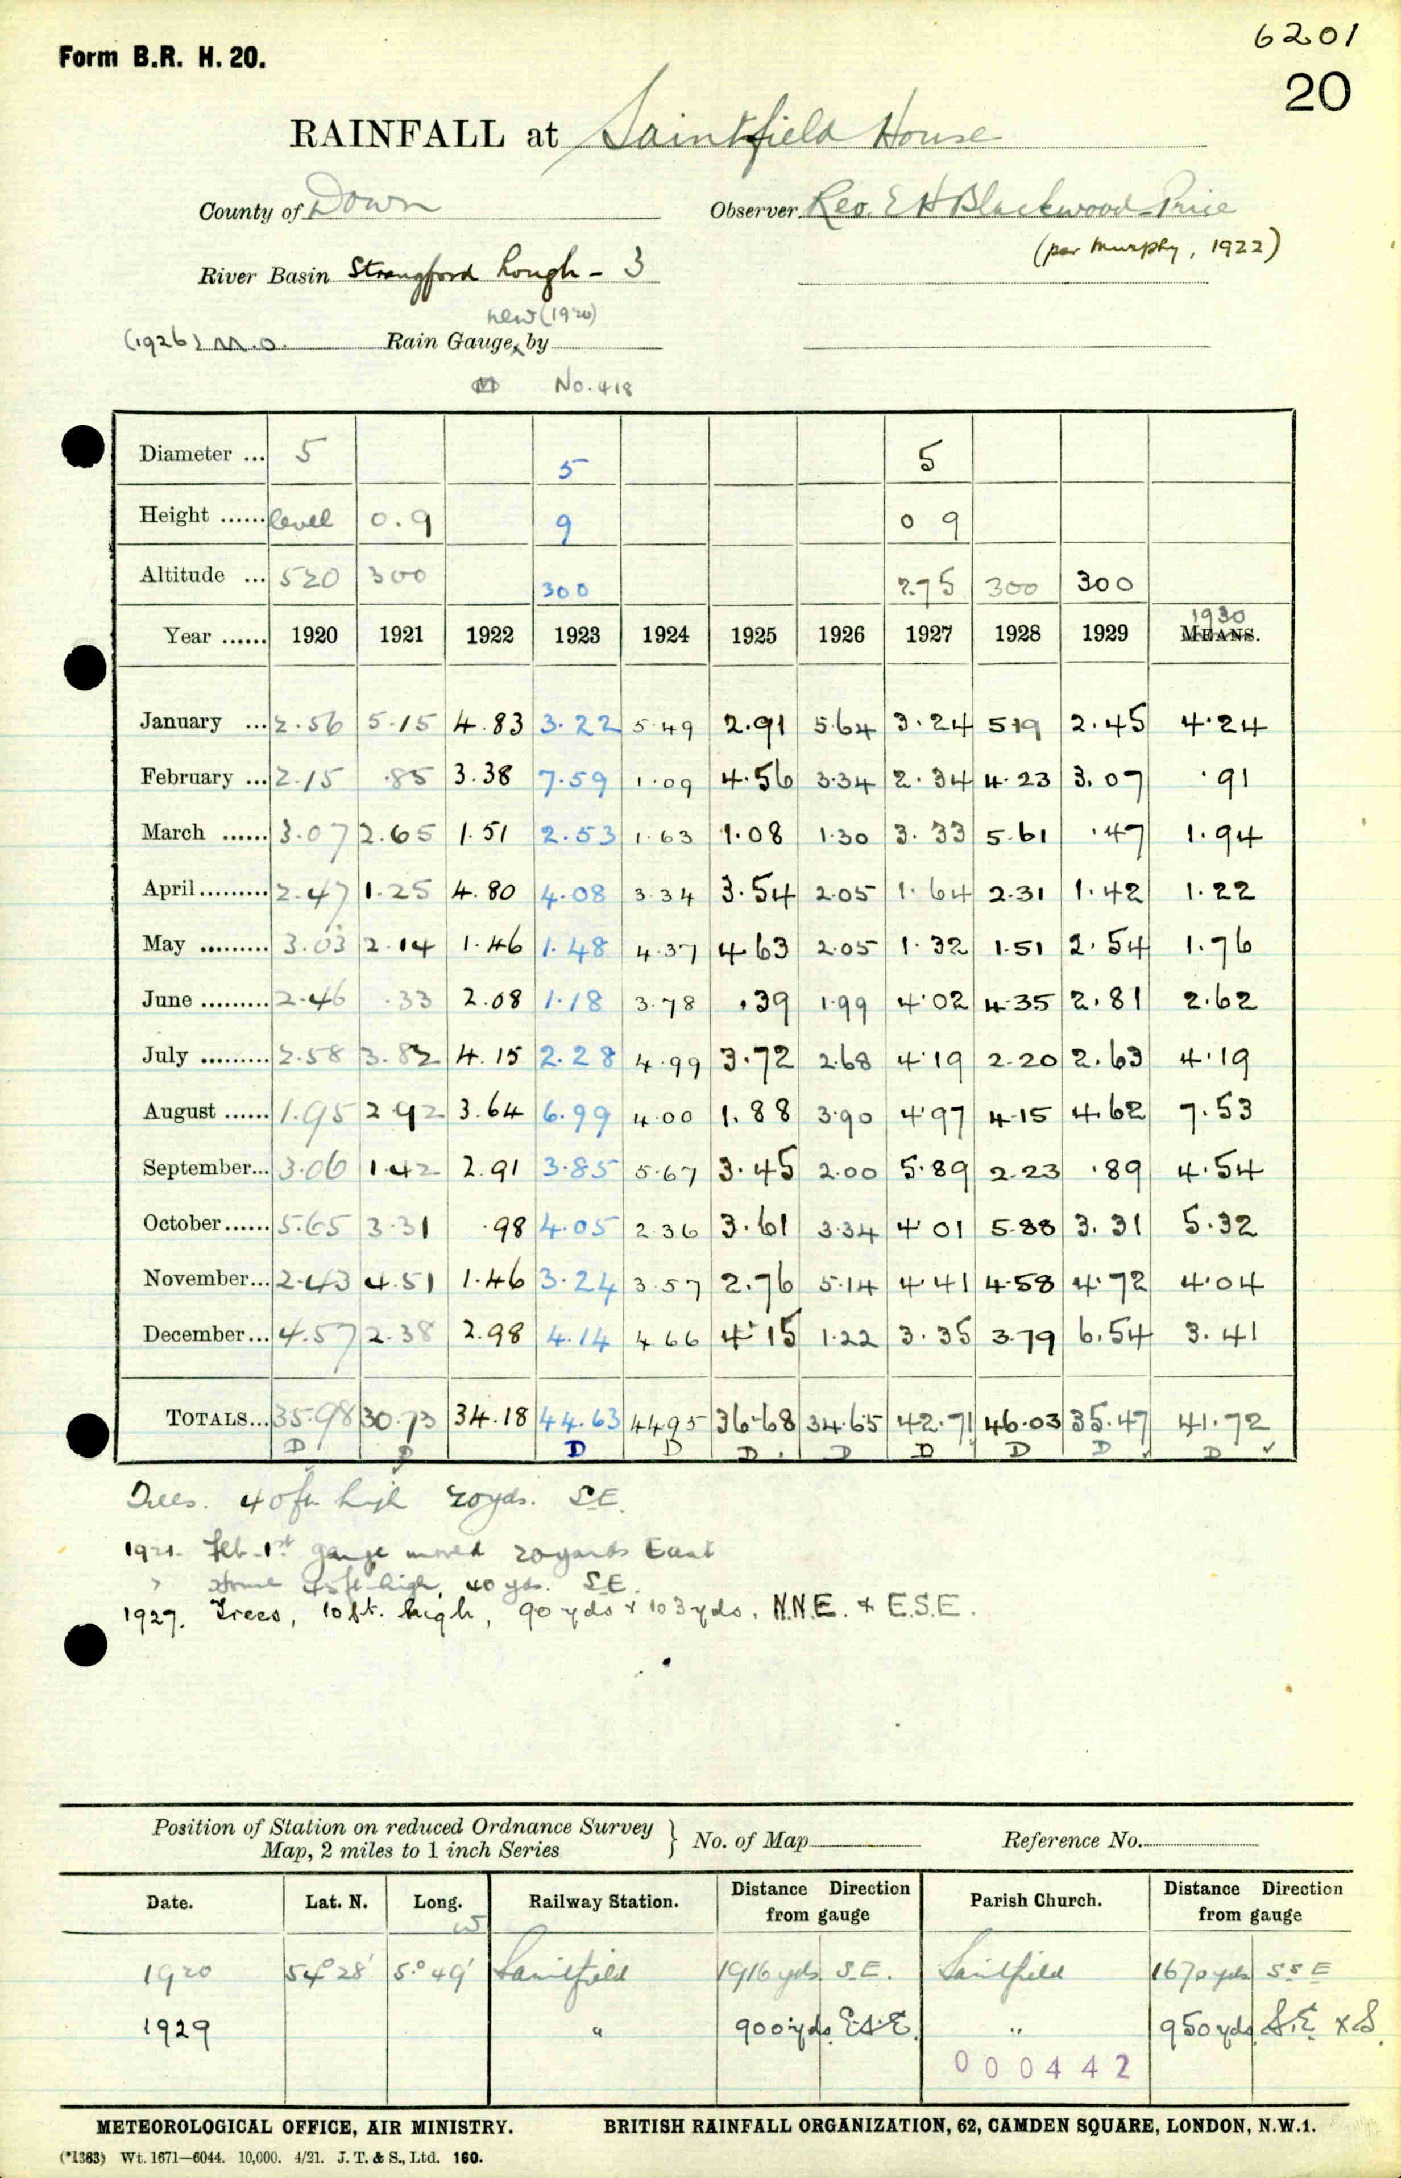 6201
Form B.R. H. 20.
20
RAINFALL at Saintfield House
County of Down Observer Rev. E H Blackwood-Price
(per Murphy, 1922)
River Basin Strangford Lough - 3
new (1920)
(1926) M.O. Rain Gauge, by
No. 418
Diameter ... 5 5 5
Height ...... level 0.9 9 0 9
Altitude ... 520 300 300 275 300 300
1930
Year ...... 1920 1921 1922 1923 1924 1925 1926 1927 1928 1929 MEANS.
January ... 2.56 5.15 4.83 3.22 5.49 2.91 5.64 3.24 5.19 2.45 4.24
February ... 2.15 .85 3.38 7.59 1.09 4.56 3.34 2.34 4.23 3.07 .91
March ...... 3.07 2.65 1.51 2.53 1.63 1.08 1.30 3.33 5.61 .47 1.94
April ......... 2.47 1.25 4.80 4.08 3.34 3.54 2.05 1.64 2.31 1.42 1.22
May ......... 3.03 2.14 1.46 1.48 4.37 4.63 2.05 1.32 1.51 2.54 1.76
June ......... 2.46 .33 2.08 1.18 3.78 .39 1.99 4.02 4.35 2.81 2.62
July ......... 2.58 3.82 4.15 2.28 4.99 3.72 2.68 4.19 2.20 2.63 4.19
August ...... 1.95 2.92 3.64 6.99 4.00 1.88 3.90 4.97 4.15 4.62 7.53
September... 3.06 1.42 2.91 3.85 5.67 3.45 2.00 5.89 2.23 .89 4.54
October...... 5.65 3.31 .98 4.05 2.36 3.61 3.34 4.01 5.88 3.31 5.32
November... 2.43 4.51 1.46 3.24 3.57 2.76 5.14 4.41 4.58 4.72 4.04
December... 4.57 2.38 2.98 4.14 4.66 4.15 1.22 3.35 3.79 6.54 3.41
TOTALS... 35.98 30.73 34.18 44.63 44.95 36.68 34.65 42.71 46.03 35.47 41.72
D D D D D D D D D D
Trees. 40ft high 20yds. S.E.
1921. Feb. 1st gauge moved 20yards East
" 45ft high, 40 yds. S.E.
1927. Trees, 10ft. high, 90 yds & 103yds, N.N.E. & E.S.E.
Position of Station on reduced Ordnance Survey
Map, 2 miles to 1 inch Series } No. of Map Reference No.
Date. Lat. N. Long. W Railway Station. Distance Direction from gauge Parish Church. Distance Direction from gauge
1920 54° 28' 5° 49' Saintfield 1916 yds S.E. Saintfield 1670 yds S S E
1929 " 900 yds. E.S.E. " 950 yds S.E. x S.
000442
METEOROLOGICAL OFFICE, AIR MINISTRY. BRITISH RAINFALL ORGANIZATION, 62, CAMDEN SQUARE, LONDON, N.W.1.
(*1383) Wt. 1671—6044. 10,000. 4/21. J. T. & S., Ltd. 160.